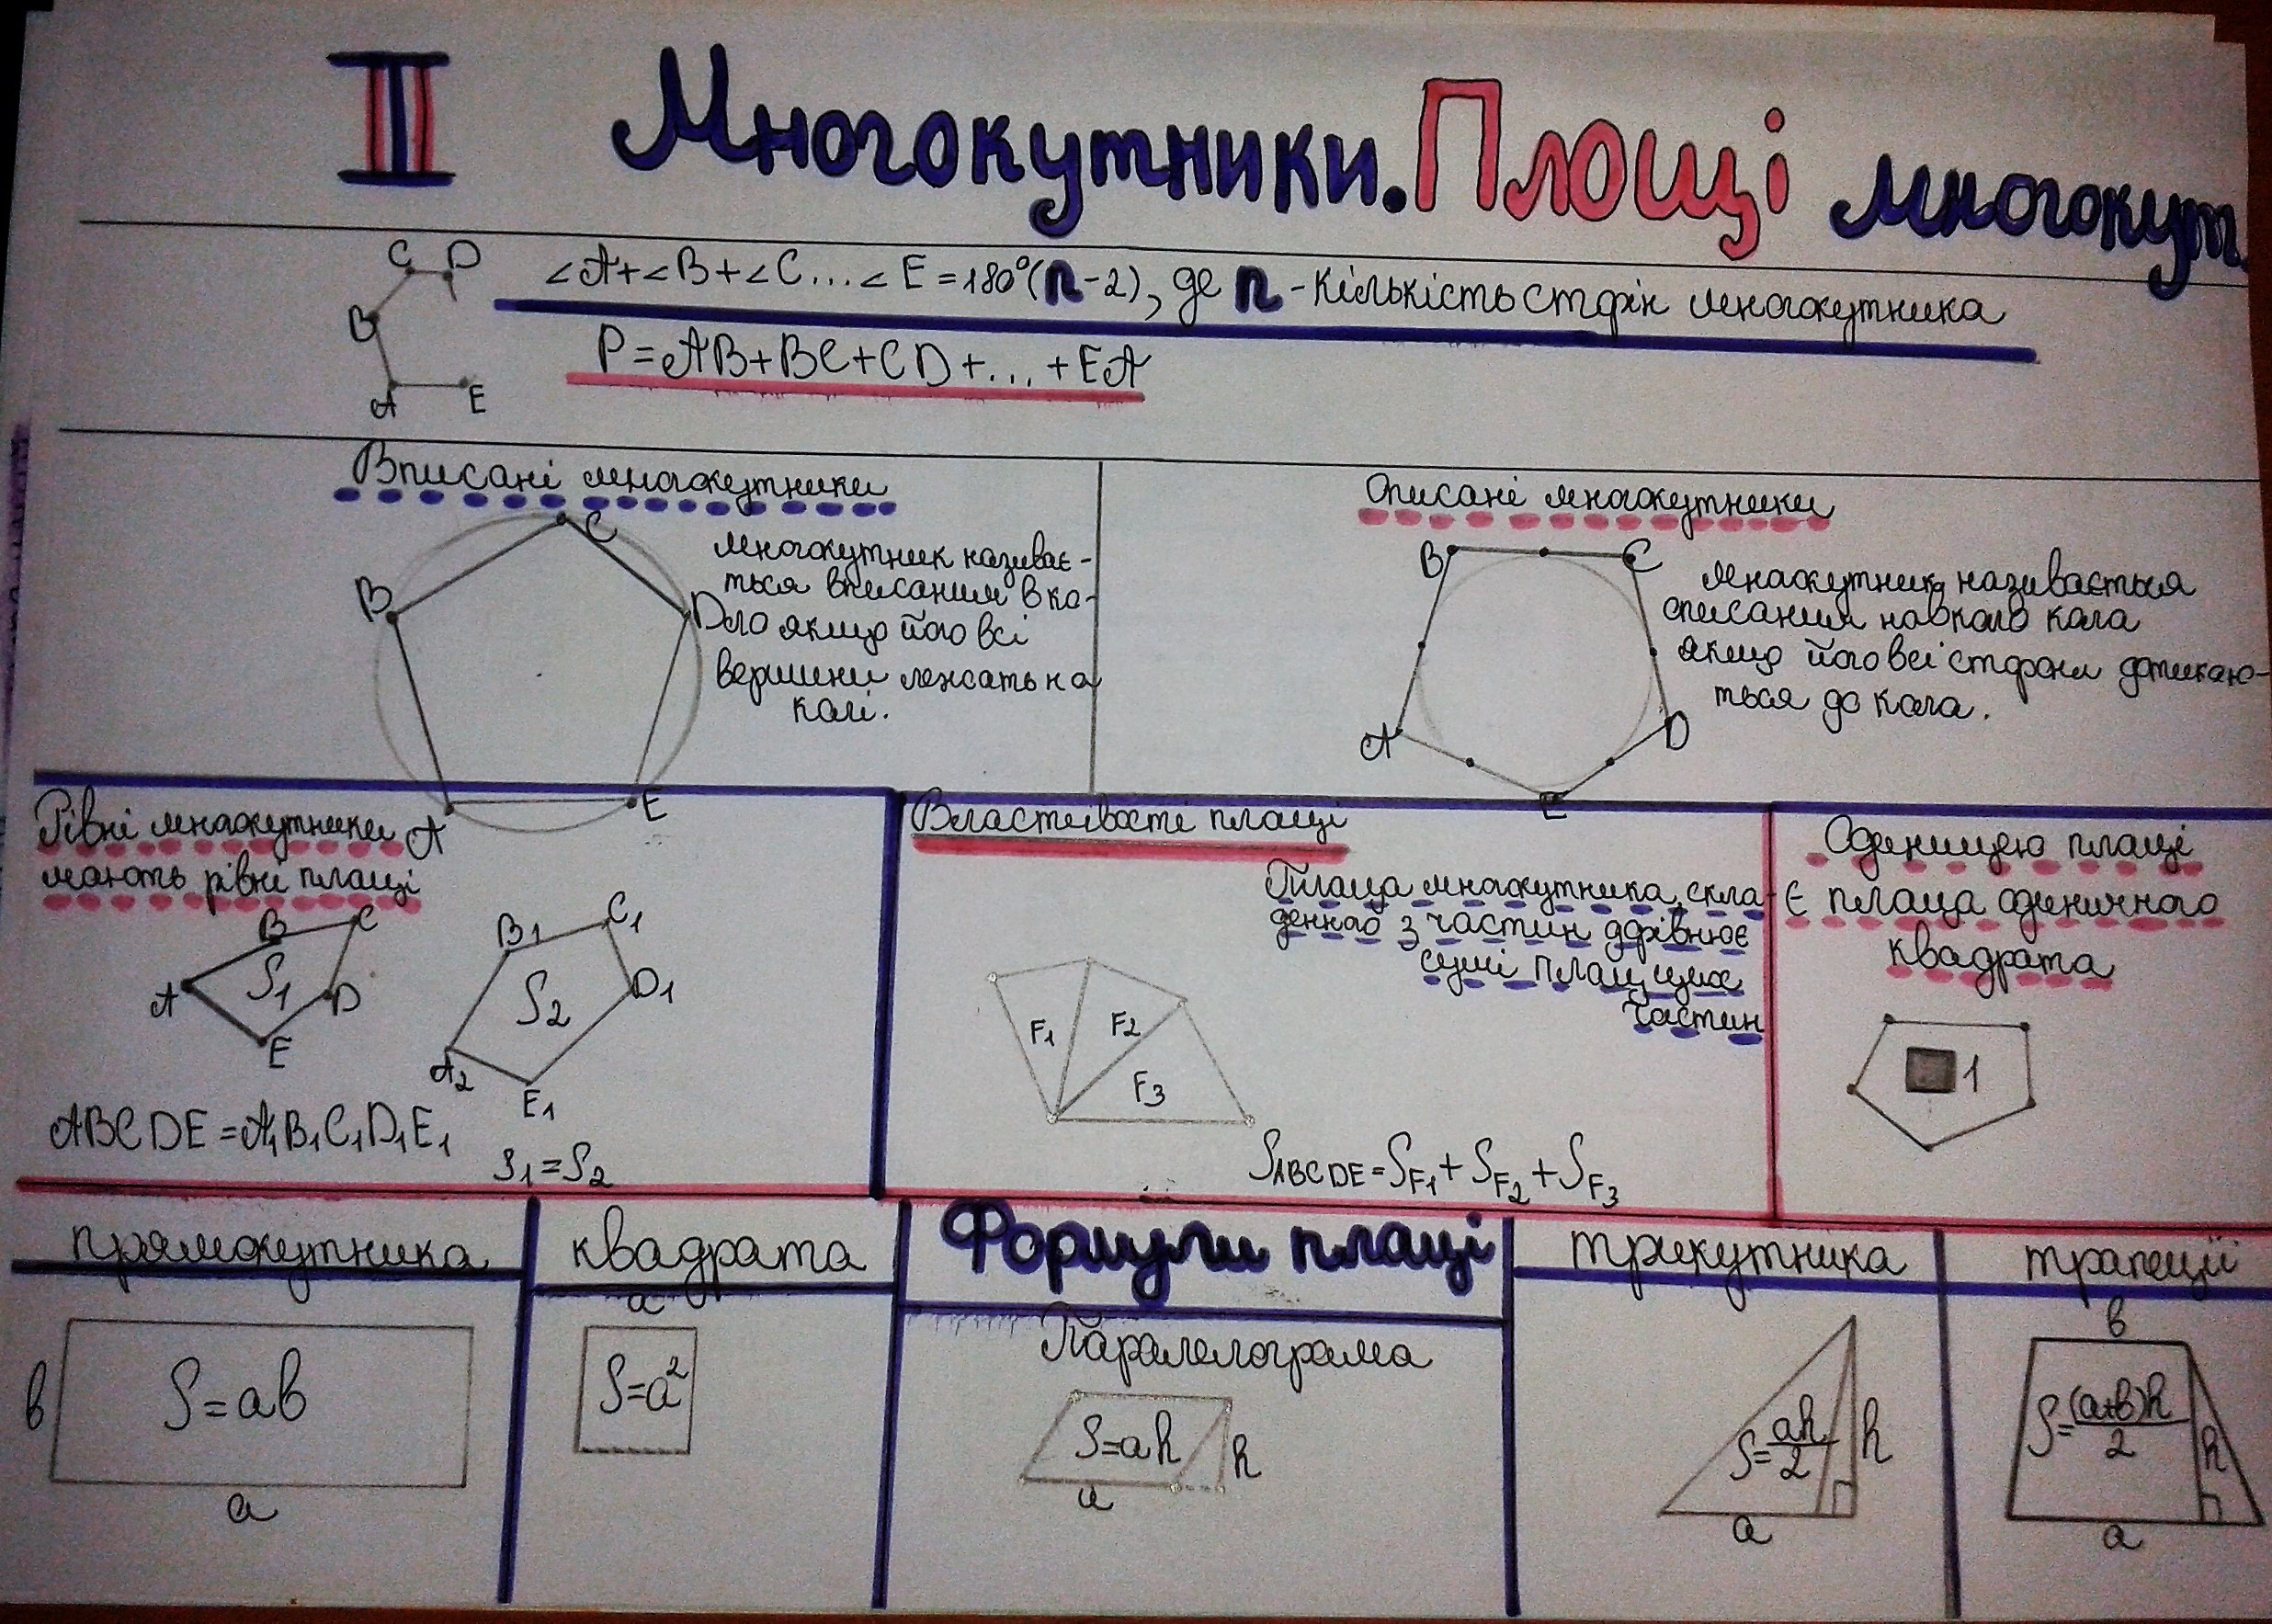 II Многокутники. Площі многокут.
C D
B
A E
∠A+∠B+∠C...∠E=180°(n-2), де n - кількість сторін многокутника
P=AB+BC+CD+...+EA
Вписані многокутники
C
B
D
A
E
многокутник називає-
ться вписаним в ко-
ло якщо його всі
вершини лежать на
колі.
Описані многокутники
B C
A D
E
Многокутник називається
описаним навколо кола
якщо його всі сторони дотикаю-
ться до кола.
Рівні многокутники
мають рівні площі
B C
A S1 D
E
B1 C1
S2 D1
A2
E1
ABCDE=A1B1C1D1E1
S1=S2
Властивості площі
Площа многокутника, скла-
денного з частин дорівнює
сумі площ цих
частин
F1 F2
F3
SABCDE=SF1+SF2+SF3
Одиницею площі
є площа одиничного
квадрата
1
прямокутника
в S=ав
a
квадрата
a
S=a²
Формули площі
Паралелограма
S=ah h
a
трикутника
S=ah/2 h
a
трапеції
в
S=(a+в)h/2 h
a